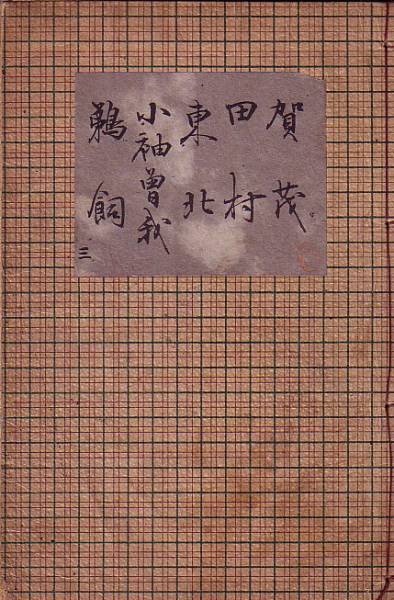 賀茂
田村
東北
小袖曽我
鵜飼
三